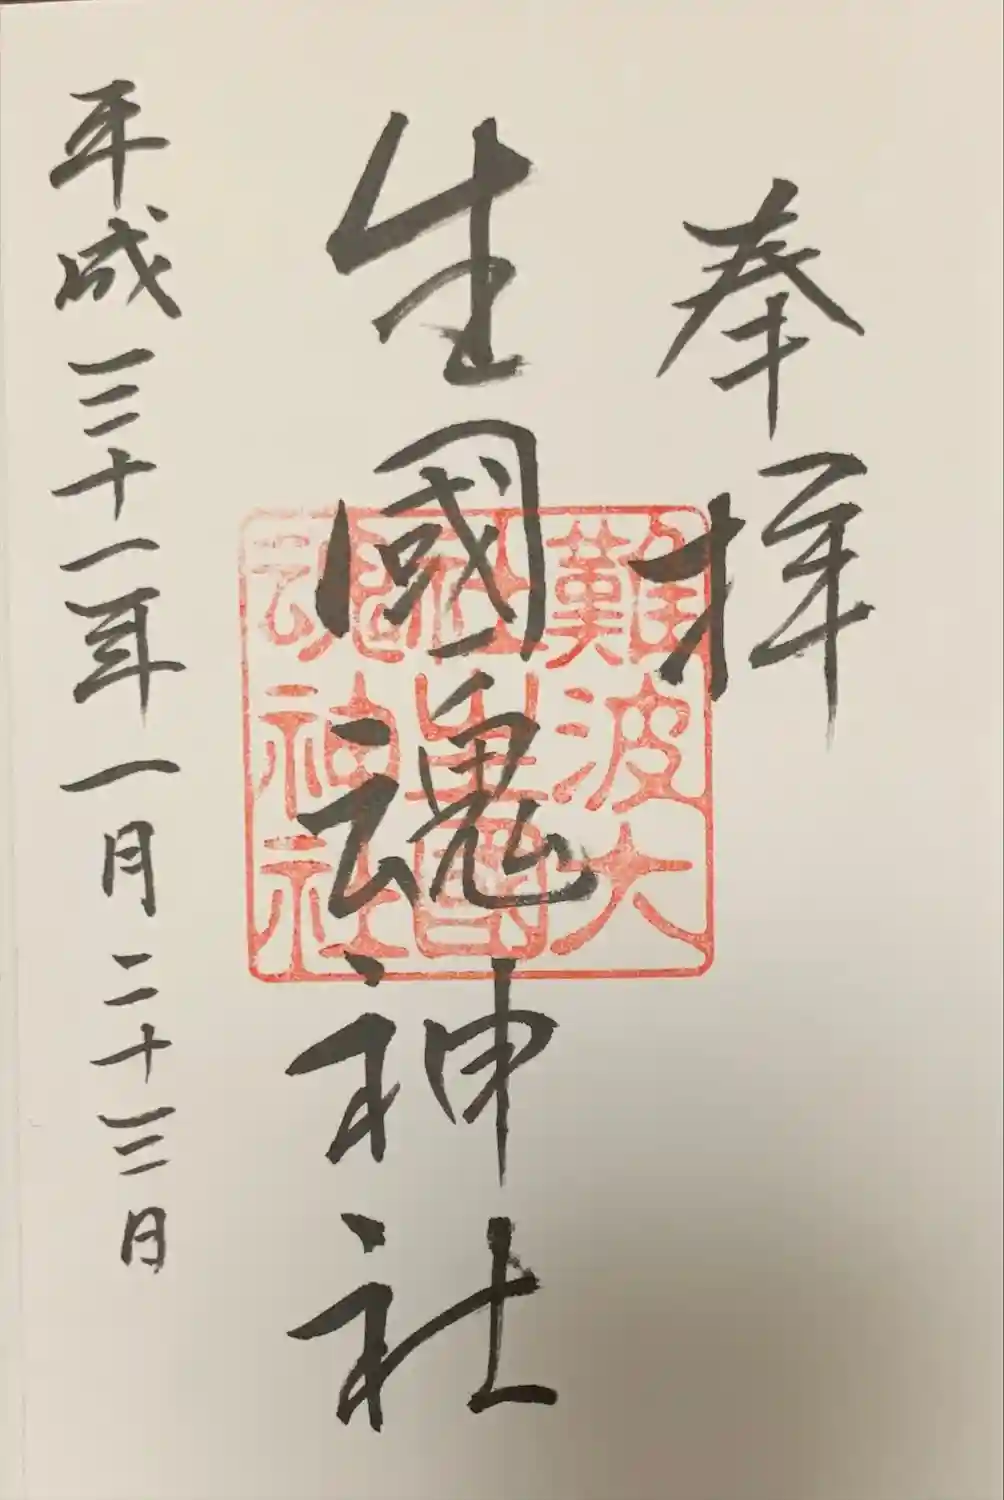 奉拝
生國魂神社
平成三十一年一月二十三日
難波大
社生國
魂神社